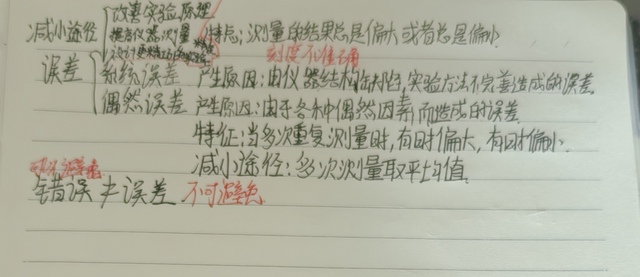 减小途径 改善实验原理
提高仪器测量 特点：测量的结果总是偏大或者总是偏小.
设计
刻度不准确
误差 系统误差 产生原因：由仪器结构缺陷，实验方法不完善造成的误差.
偶然误差 产生原因：由于各种偶然因素而造成的误差.
特征：当多次重复测量时，有时偏大，有时偏小.
减小途径：多次测量取平均值.
可以避免
错误≠误差 不可避免